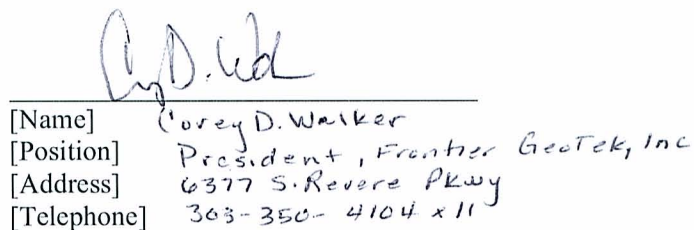 Corey D. Walker
[Name] Corey D. Walker
[Position] President, Frontier GeoTek, Inc
[Address] 6377 S. Revere Pkwy
[Telephone] 303-350-4104 x 11